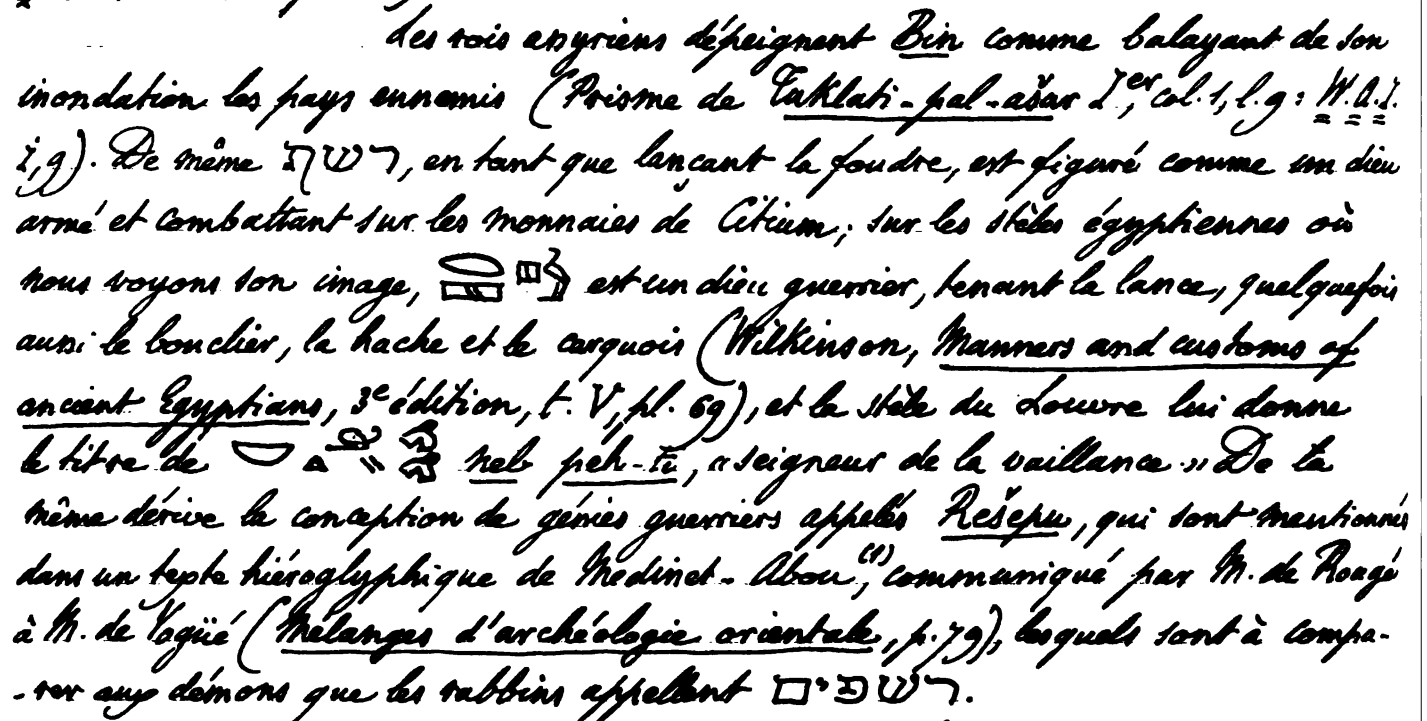 Les rois assyriens dépeignent Bin comme balayant de son
inondation les pays ennemis (Prisme de Tuklati-pal-ašar I.er, col. 1, l. 9 : W.A.I.
I, 9). De même רשף, en tant que lançant la foudre, est figuré comme un dieu
armé et combattant sur les monnaies de Citium ; sur les stèles égyptiennes où
nous voyons son image, est un dieu guerrier, tenant la lance, quelquefois
aussi le bouclier, la hache et le carquois (Wilkinson, Manners and customs of
ancient Egyptians, 3e édition, t. V, pl. 69), et la stèle du Louvre lui donne
le titre de neb peh-ti, « seigneur de la vaillance. » De là
même dérive la conception de génies guerriers appelés Rešepu, qui sont mentionnés
dans un texte hiéroglyphique de Medinet-Abou (1), communiqué par M. de Rougé
à M. de Vogüé (Mélanges d'archéologie orientale, p. 79), lesquels sont à compa-
-rer aux démons que les rabbins appellent רשפים.